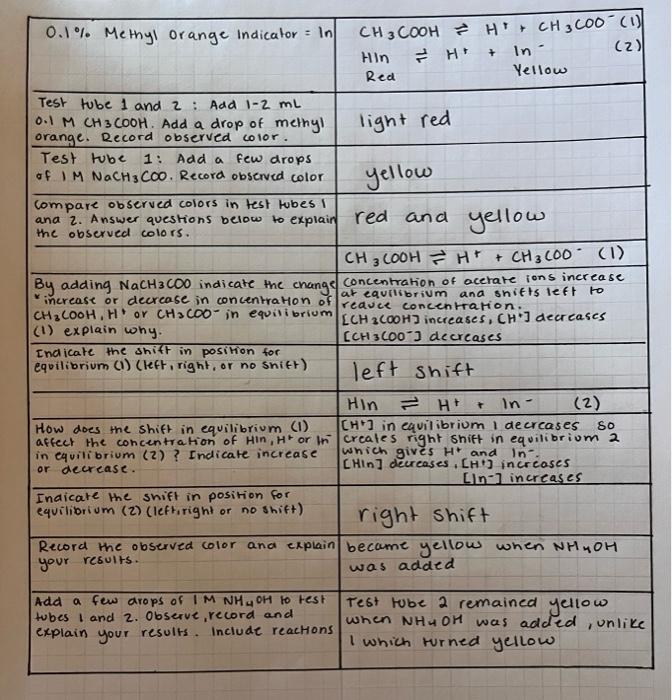 0.1% Methyl Orange Indicator = In
CH3COOH ⇌ H+ + CH3COO- (1)
HIn ⇌ H+ + In- (2)
Red Yellow
Test tube 1 and 2 : Add 1-2 mL
0.1 M CH3COOH. Add a drop of methyl
orange. Record observed color.
light red
Test tube 1: Add a few drops
of 1 M NaCH3COO. Record observed color
yellow
Compare observed colors in test tubes 1
and 2. Answer questions below to explain
the observed colors.
red and yellow
CH3COOH ⇌ H+ + CH3COO- (1)
By adding NaCH3COO indicate the change
"increase or decrease in concentration of
CH3COOH, H+ or CH3COO- in equilibrium
(1) explain why.
Concentration of acetate ions increase
at equilibrium and shifts left to
reduce concentration.
[CH3COOH] increases, [H+] decreases
[CH3COO-] decreases
Indicate the shift in position for
equilibrium (1) (left, right, or no shift)
left shift
HIn ⇌ H+ + In- (2)
How does the shift in equilibrium (1)
affect the concentration of HIn, H+ or In-
in equilibrium (2) ? Indicate increase
or decrease.
[H+] in equilibrium 1 decreases so
creates right shift in equilibrium 2
which gives H+ and In-.
[HIn] decreases, [H+] increases
[In-] increases
Indicate the shift in position for
equilibrium (2) (left, right or no shift)
right shift
Record the observed color and explain
your results.
became yellow when NH4OH
was added
Add a few drops of 1 M NH4OH to test
tubes 1 and 2. Observe, record and
explain your results. Include reactions
Test tube 2 remained yellow
when NH4OH was added, unlike
1 which turned yellow